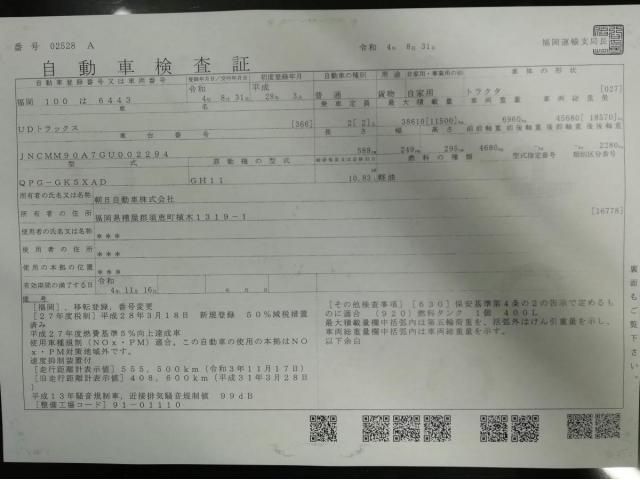 番号 02528 A
令和 4年 8月 31日
福岡運輸支局長
自動車検査証
自動車登録番号又は車両番号 登録年月日/交付年月日 初度登録年月 自動車の種別 用途 自家用・事業用の別 車体の形状
福岡 100 は 6443 令和 4年 8月 31日 平成 28年 3月 普通 貨物 自家用 トラクタ [027]
車名 乗車定員 最大積載量 車両重量 車両総重量
UDトラックス [366] 2[ 2]人 38610[11500]kg 6960kg 45680[18570]kg
車台番号 長さ 幅 高さ 前前軸重 前後軸重 後前軸重 後後軸重
JNCMM90A7GU002294 589cm 249cm 295cm 4680kg -kg -kg 2280kg
型式 原動機の型式 燃料の種類 型式指定番号 類別区分番号
QPG-GK5XAD GH11 10.83L 軽油
所有者の氏名又は名称 朝日自動車株式会社
所有者の住所 福岡県糟屋郡須恵町植木1319-1 [16778]
使用者の氏名又は名称 ***
使用者の住所 ***
使用の本拠の位置 ***
有効期間の満了する日 令和 4年 11月 16日
備考
[福岡]，移転登録，番号変更
[27年度税制]平成28年3月18日 新規登録 50%減税措置
済み
平成27年度燃費基準5%向上達成車
使用車種規制（NOx・PM）適合，この自動車の使用の本拠はNO
x・PM対策地域外です。
速度抑制装置付
[走行距離計表示値] 555,500km(令和3年11月17日)
[旧走行距離計表示値] 408,600km(平成31年3月28日
)
平成13年騒音規制車，近接排気騒音規制値 99dB
[整備工場コード] 91-01110
[その他検査事項] [630] 保安基準第4条の2の告示で定めるも
のに適合 (920) 燃料タンク 1個 400L
最大積載量欄中括弧内は第五輪荷重を、括弧外はけん引重量を示し、
車両総重量欄中括弧内は車両総重量を示す。
以下余白
裏面もご覧下さい。